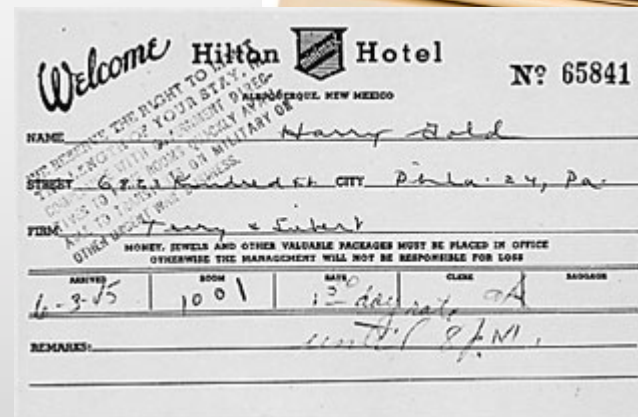 Welcome Hilton Hotel
ALBUQUERQUE, NEW MEXICO
Nº 65841
WE RESERVE THE RIGHT TO LIMIT
THE LENGTH OF YOUR STAY, IN
WITH GOVERNMENT DIREC-
TIVES TO ROOMS QUICKLY AVAIL-
ABLE TO ON MILITARY OR
OTHER URGENT WAR BUSINESS.
NAME Harry Gold
STREET 6823 Kindred St. CITY Phila. 24, Pa.
FIRM Terry & Seibert
MONEY, JEWELS AND OTHER VALUABLE PACKAGES MUST BE PLACED IN OFFICE
OTHERWISE THE MANAGEMENT WILL NOT BE RESPONSIBLE FOR LOSS
ARRIVED ROOM RATE CLERK BAGGAGE
6-3-45 1001 day rate
until 8 P.M.
REMARKS: